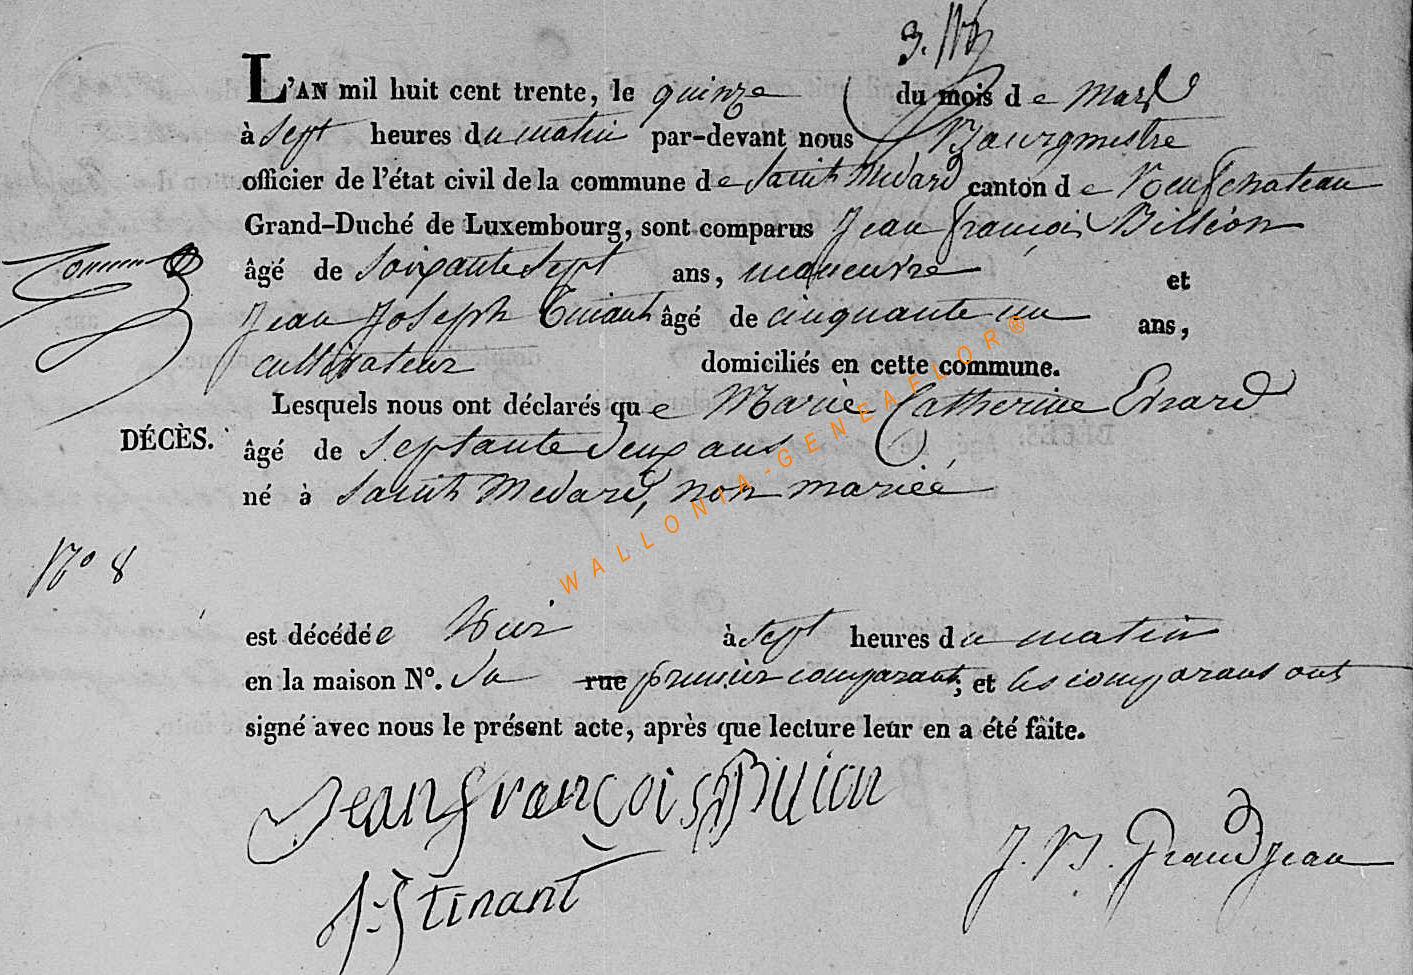 3.
L'AN mil huit cent trente, le quinze du mois de Mars
à sept heures du matin par-devant nous Bourgmestre
officier de l'état civil de la commune de Saint Medard canton de Neufchateau
Grand-Duché de Luxembourg, sont comparus Jean François Billion
âgé de Soixante Sept ans, maneuvre et
Jean Joseph Tinant âgé de cinquante un ans,
cultivateur domiciliés en cette commune.
Lesquels nous ont déclarés que Marie Catherine Evrard
DÉCÈS.
âgé de Septante deux ans
né à Saint Medard, non mariée
No 8
est décédée hier à sept heures du matin
en la maison No. du rue premier comparant; et les comparans ont
signé avec nous le présent acte, après que lecture leur en a été faite.
Jean françois Billion
J-J tinant
J. B. Grandjean
WALLONIA-GENEAFLOR®